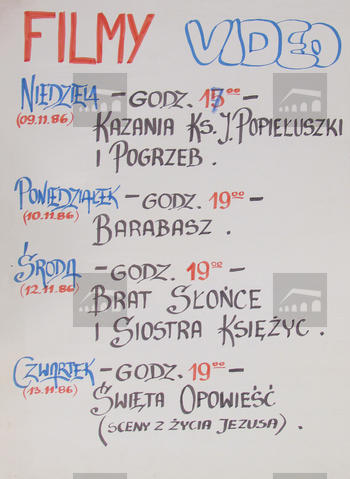 FILMY VIDEO
NIEDZIELA – GODZ. –
(09.11.86)
KAZANIA KS. J. POPIEŁUSZKI
I POGRZEB .
PONIEDZIAŁEK – GODZ. 19⁰⁰ –
(10.11.86)
BARABASZ .
ŚRODA – GODZ. 19⁰⁰ –
(12.11.86)
BRAT SŁOŃCE
I SIOSTRA KSIĘŻYC .
CZWARTEK – GODZ. 19⁰⁰ –
(13.11.86)
ŚWIĘTA OPOWIEŚĆ
(SCENY Z ŻYCIA JEZUSA) .